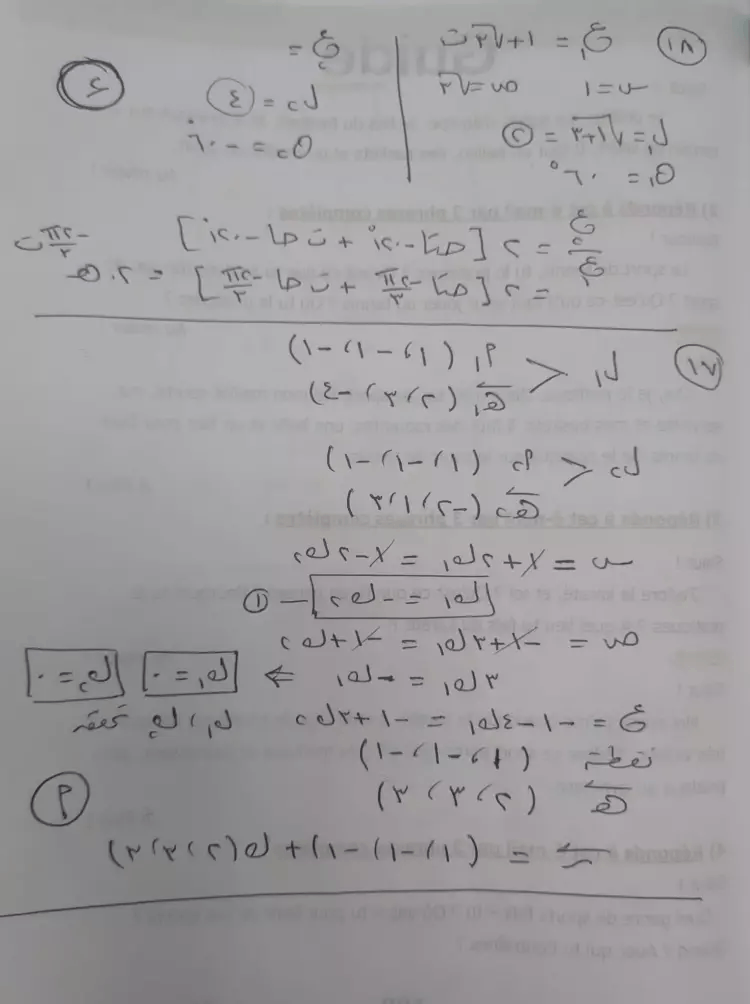 ١٨
ع١ = ١ + √٣ ت
س = ١   ص = √٣
ل١ = √(١+٣) = ٢
θ١ = ٦٠°
ع٢ =
ل٢ = ٤
θ٢ = -٦٠°
ء
ع٢/ع١ = ٢ [حتا -١٢٠° + ت حا -١٢٠°]
= ٢ [حتا -٢π/٣ + ت حا -٢π/٣] = ٢ هـ^(-٢π/٣ ت)
١٧
ل١ < م١ (١، -١، -١)
هـ١ (٢، ٣، -٤)
ل٢ < م٢ (١، -١، -١)
هـ٢ (-٢، ١، ٣)
س = ١ + ٢ك١ = ١ - ٢ك٢
ك١ = -ك٢ — ①
ص = -١ + ٣ك١ = -١ + ك٢
٣ك١ = -ك١ ⇐ ك١ = ٠   ك٢ = ٠
ع = -١ - ٤ك١ = -١ + ٣ك٢   ك١، ك٢ تحققه
نقطة (١، -١، -١)
هـ (٢، ٣، ٣)
م
ر = (١، -١، -١) + ك(٢، ٣، ٣)